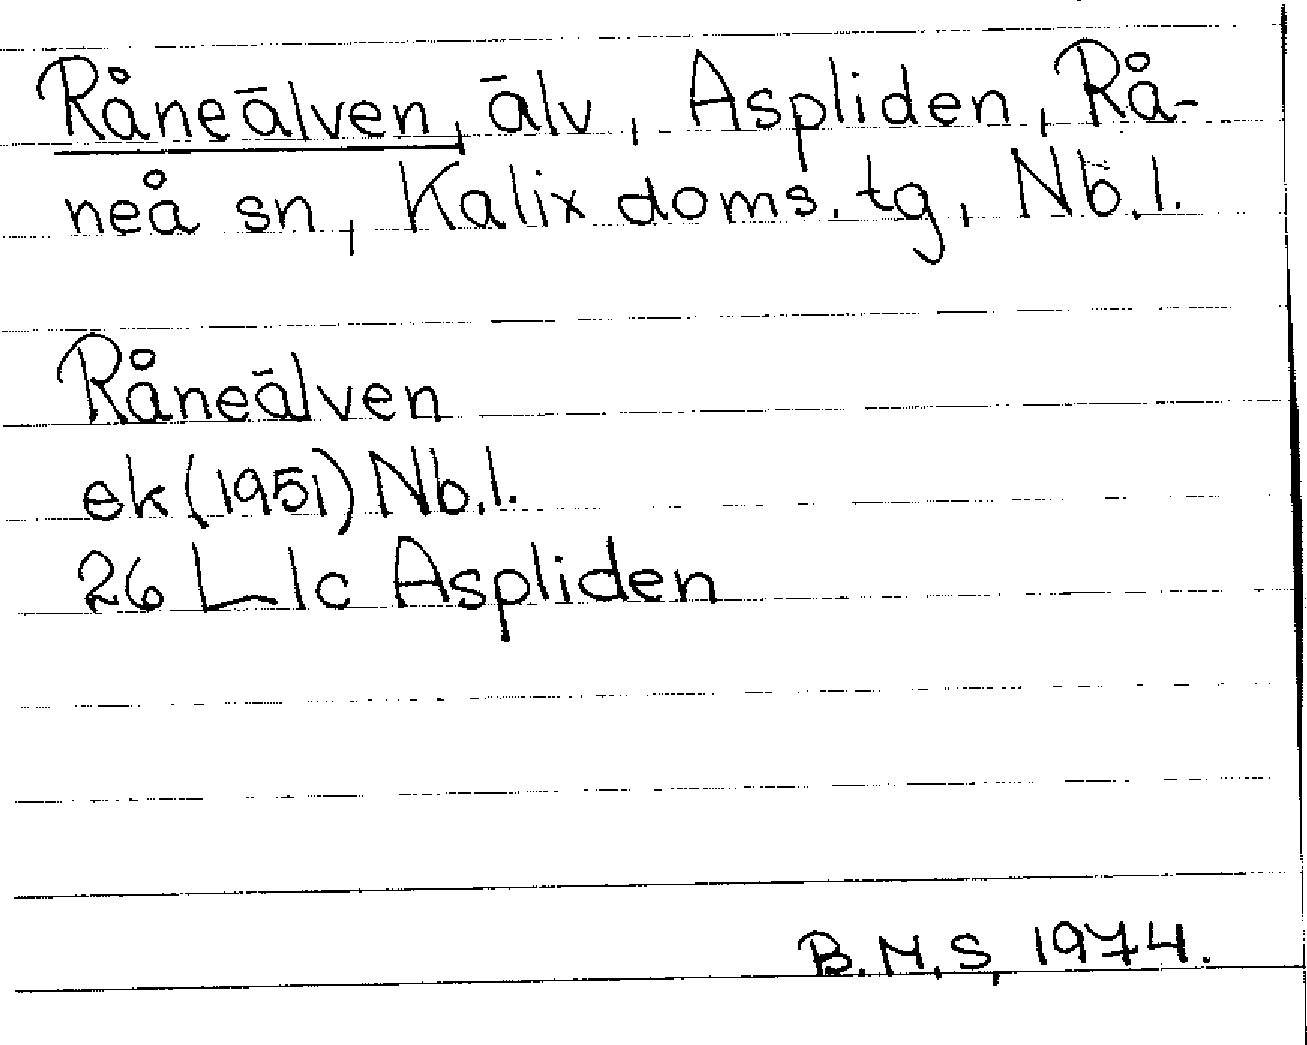 Råneälven, älv, Aspliden, Rå-
neå sn, Kalix doms. tg, Nb. l.
Råneälven
ek (1951) Nb. l.
26 L 1c Aspliden
B. M. S, 1974.